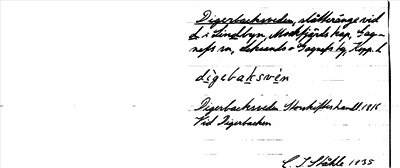 Digerbacksveden, slåtteräng vid
L i Lindbyn, Mockfjärds kap, Gag-
nefs sn, Leksands o Gagnefs tg, Kopp. l
digebakswèn
Digerbacksveda Storskifteshandl. 1816
Vid Digerbacken
C. I. Ståhle 1935